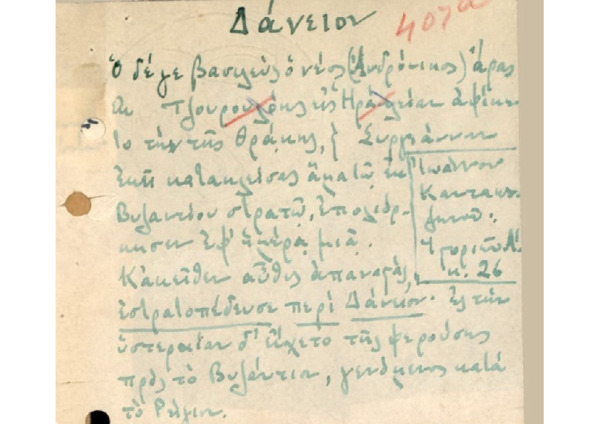 Δάνειον
407α
Ὁ δέ γε βασιλεὺς ὁ νέος (Ἀνδρόνικος) ἄρας
ἐκ Τζουρουλόης εἰς Ἡράκλειαν ἀφίκε-
το τὴν τῆς Θράκης, } Συργιάννην
ἐκεῖ κατακλείσας ἅμα τῷ ἐκ
Βυζαντίου στρατῷ, ἐπολιόρ-
κησεν ἐφ' ἡμέρᾳ μιᾷ.
Κἀκεῖθεν αὖθις ἀπαναστὰς,
ἐστρατοπέδευσε περὶ Δάνειον. Ἐς τὴν
ὑστεραίαν δ' εἴχετο τῆς φερούσης
πρὸς τὸ Βυζάντιον, γενόμενος κατὰ
τὸ Ῥήγιον.
Ἰωάννου
Καντακου-
ζηνοῦ.
Ἱστοριῶν Α.
κ. 26